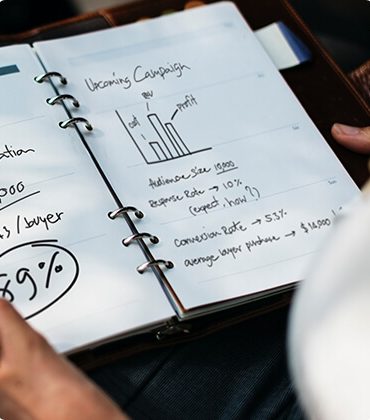 ation
000
/ buyer
89%
Upcoming Campaign
cost
rev
profit
Audience size 10,000
Response Rate → 10%
(expect, how?)
Conversion Rate → 53%
average buyer purchase → $